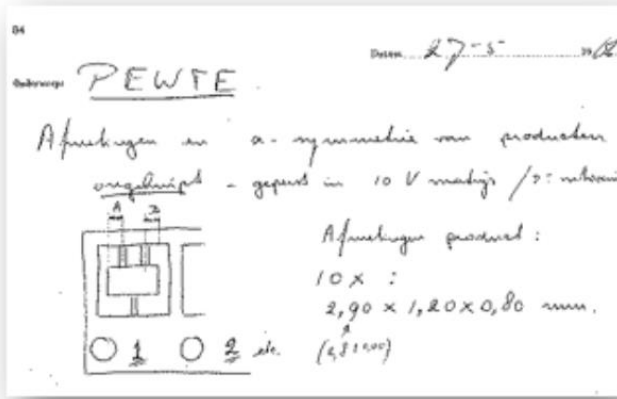 84
Datum 27-5 19
Onderwerp PEWTE
Afmetingen en a-symmetrie van producten
ongeknipt - geperst in 10 V matrijs
A
Afmetingen product:
10x :
2,90 x 1,20 x 0,80 mm.
1 2 etc.